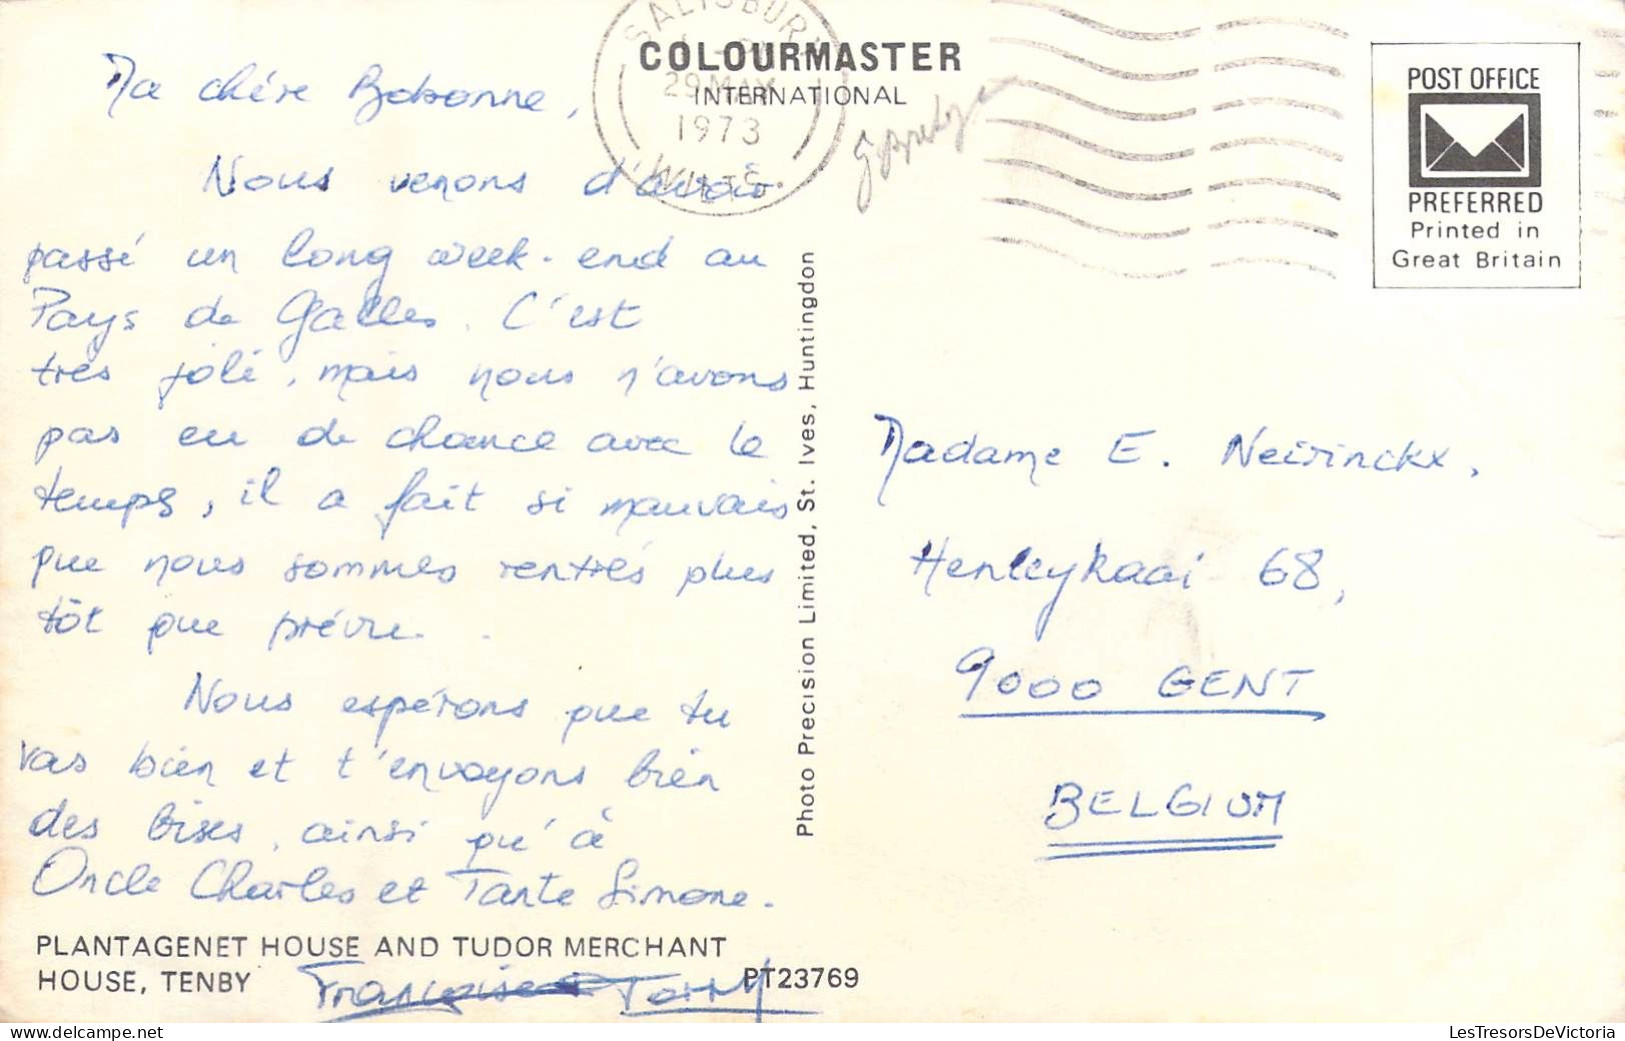 SALISBURY
29 MAY
1973
WILTS.
COLOURMASTER
INTERNATIONAL
POST OFFICE
PREFERRED
Printed in
Great Britain
Ma chère Bobonne,
Nous venons d'avoir
passé un long week-end au
Pays de Galles. C'est
très joli, mais nous n'avons
pas eu de chance avec le
temps, il a fait si mauvais
que nous sommes rentrés plus
tôt que prévu.
Nous espérons que tu
vas bien et t'envoyons bien
des bises, ainsi qu'à
Oncle Charles et Tante Simone.
Françoise
PLANTAGENET HOUSE AND TUDOR MERCHANT
HOUSE, TENBY
PT23769
Photo Precision Limited, St. Ives, Huntingdon
Madame E. Neirinckx,
Henleykaai 68,
9000 GENT
BELGIUM
LesTresorsDeVictoria